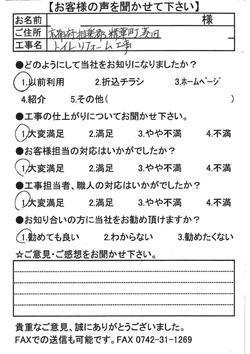 【お客様の声を聞かせて下さい】
お名前 様
ご住所 京都府相楽郡精華町菱田
工事名 トイレリフォーム工事
●どのようにして当社をお知りになりましたか？
1.以前利用 2.折込チラシ 3.ホームページ
4.紹介 5.その他( )
●工事の仕上がりについてお聞かせ下さい。
1.大変満足 2.満足 3.やや不満 4.不満
●お客様担当の対応はいかがでしたか？
1.大変満足 2.満足 3.やや不満 4.不満
●工事担当者、職人の対応はいかがでしたか？
1.大変満足 2.満足 3.やや不満 4.不満
●お知り合いの方に当社をお勧め頂けますか？
1.勧めても良い 2.わからない 3.勧めたくない
☆ご意見・ご感想をお聞かせ下さい。
貴重なご意見、誠にありがとうございました。
FAXでの送信も可能です。FAX 0742-31-1269